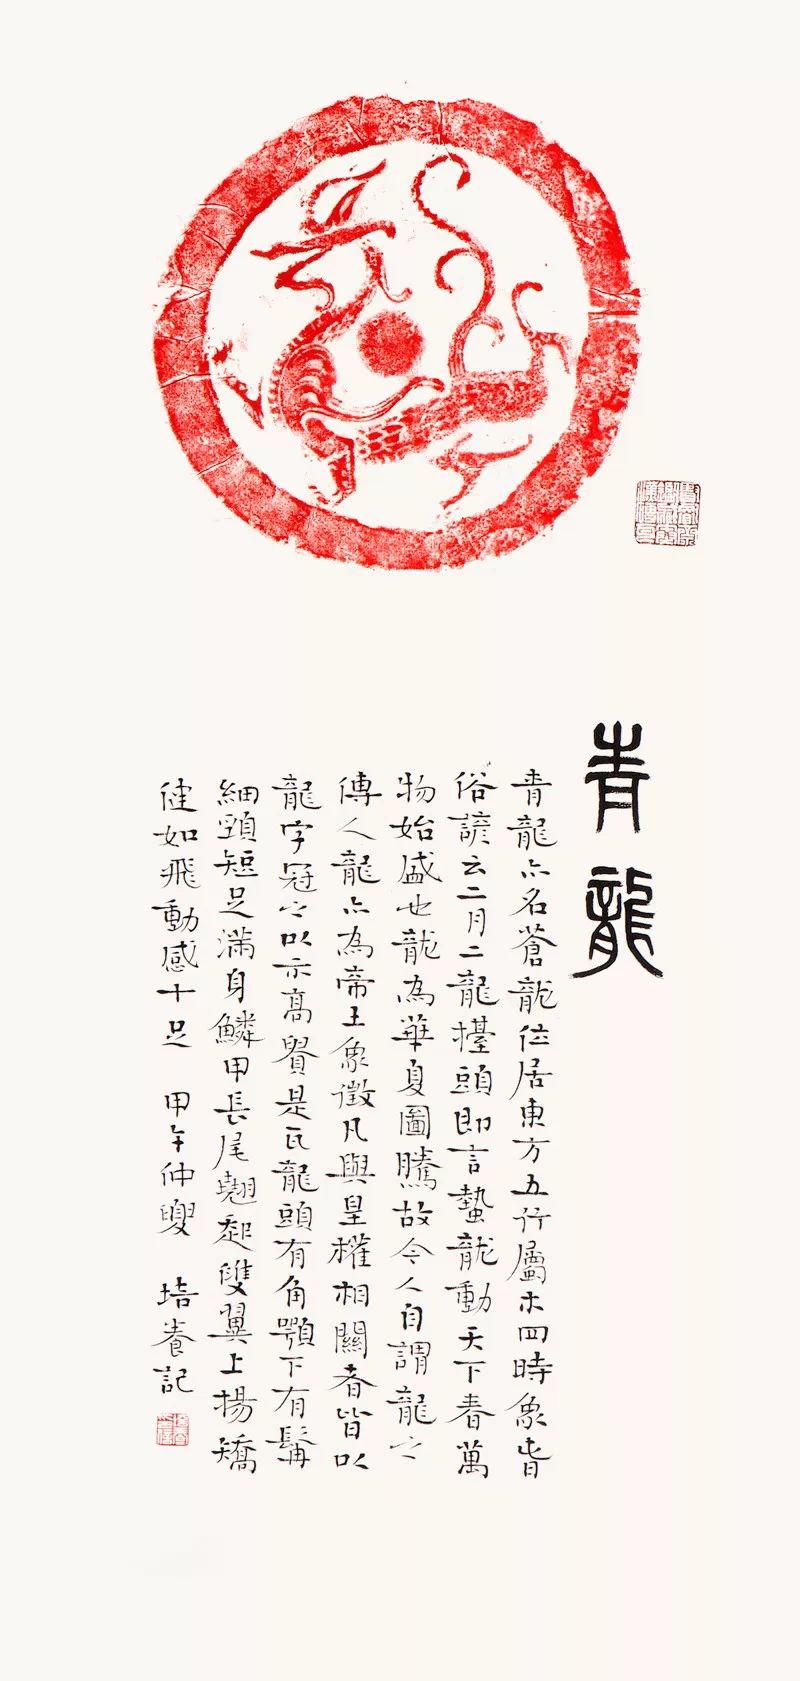 青龍
青龍亦名蒼龍位居東方五行屬木四時象春
俗諺云二月二龍擡頭即言蟄龍動天下春萬
物始盛也龍為華夏圖騰故今人自謂龍之
傳人龍亦為帝王象徵凡與皇權相關者皆以
龍字冠之以示高貴是瓦龍頭有角顎下有髯
細頸短足滿身鱗甲長尾翹起雙翼上揚矯
健如飛動感十足 甲午仲夏 培養記